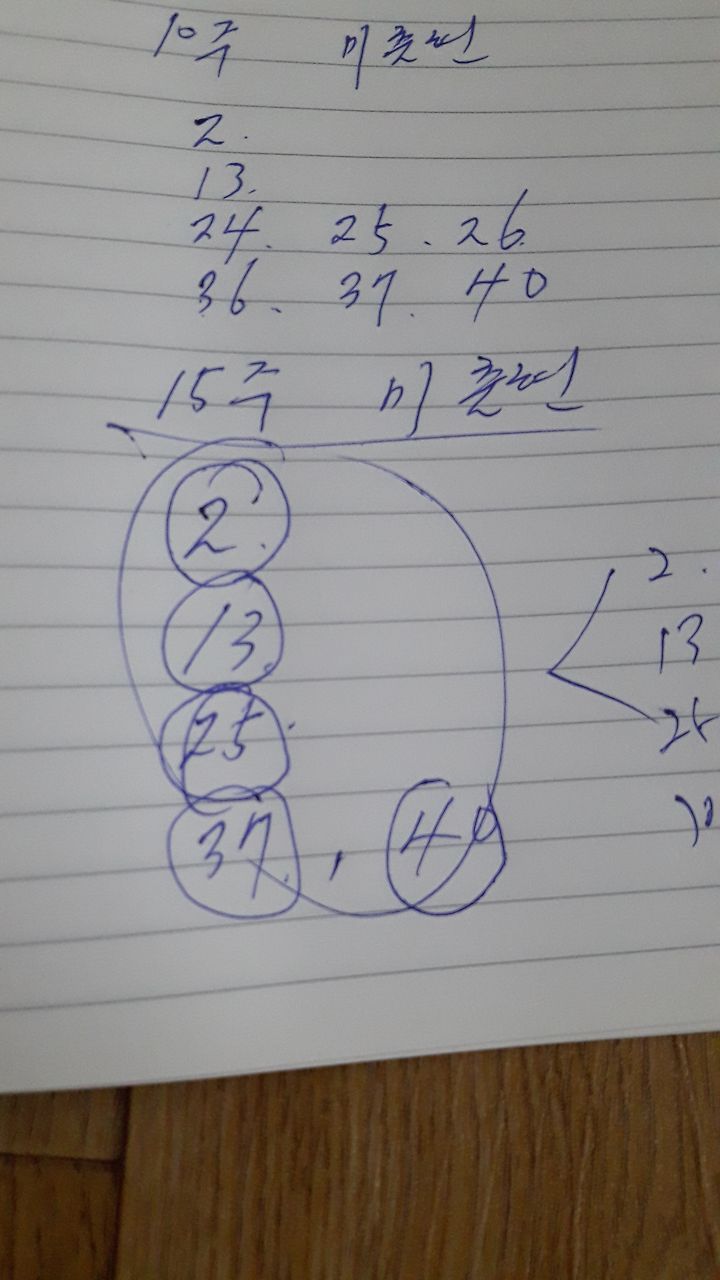 10주 미출현
2.
13.
24. 25. 26.
36. 37. 40
15주 미출현
2.
13.
25.
37. , 40
2.
13
25